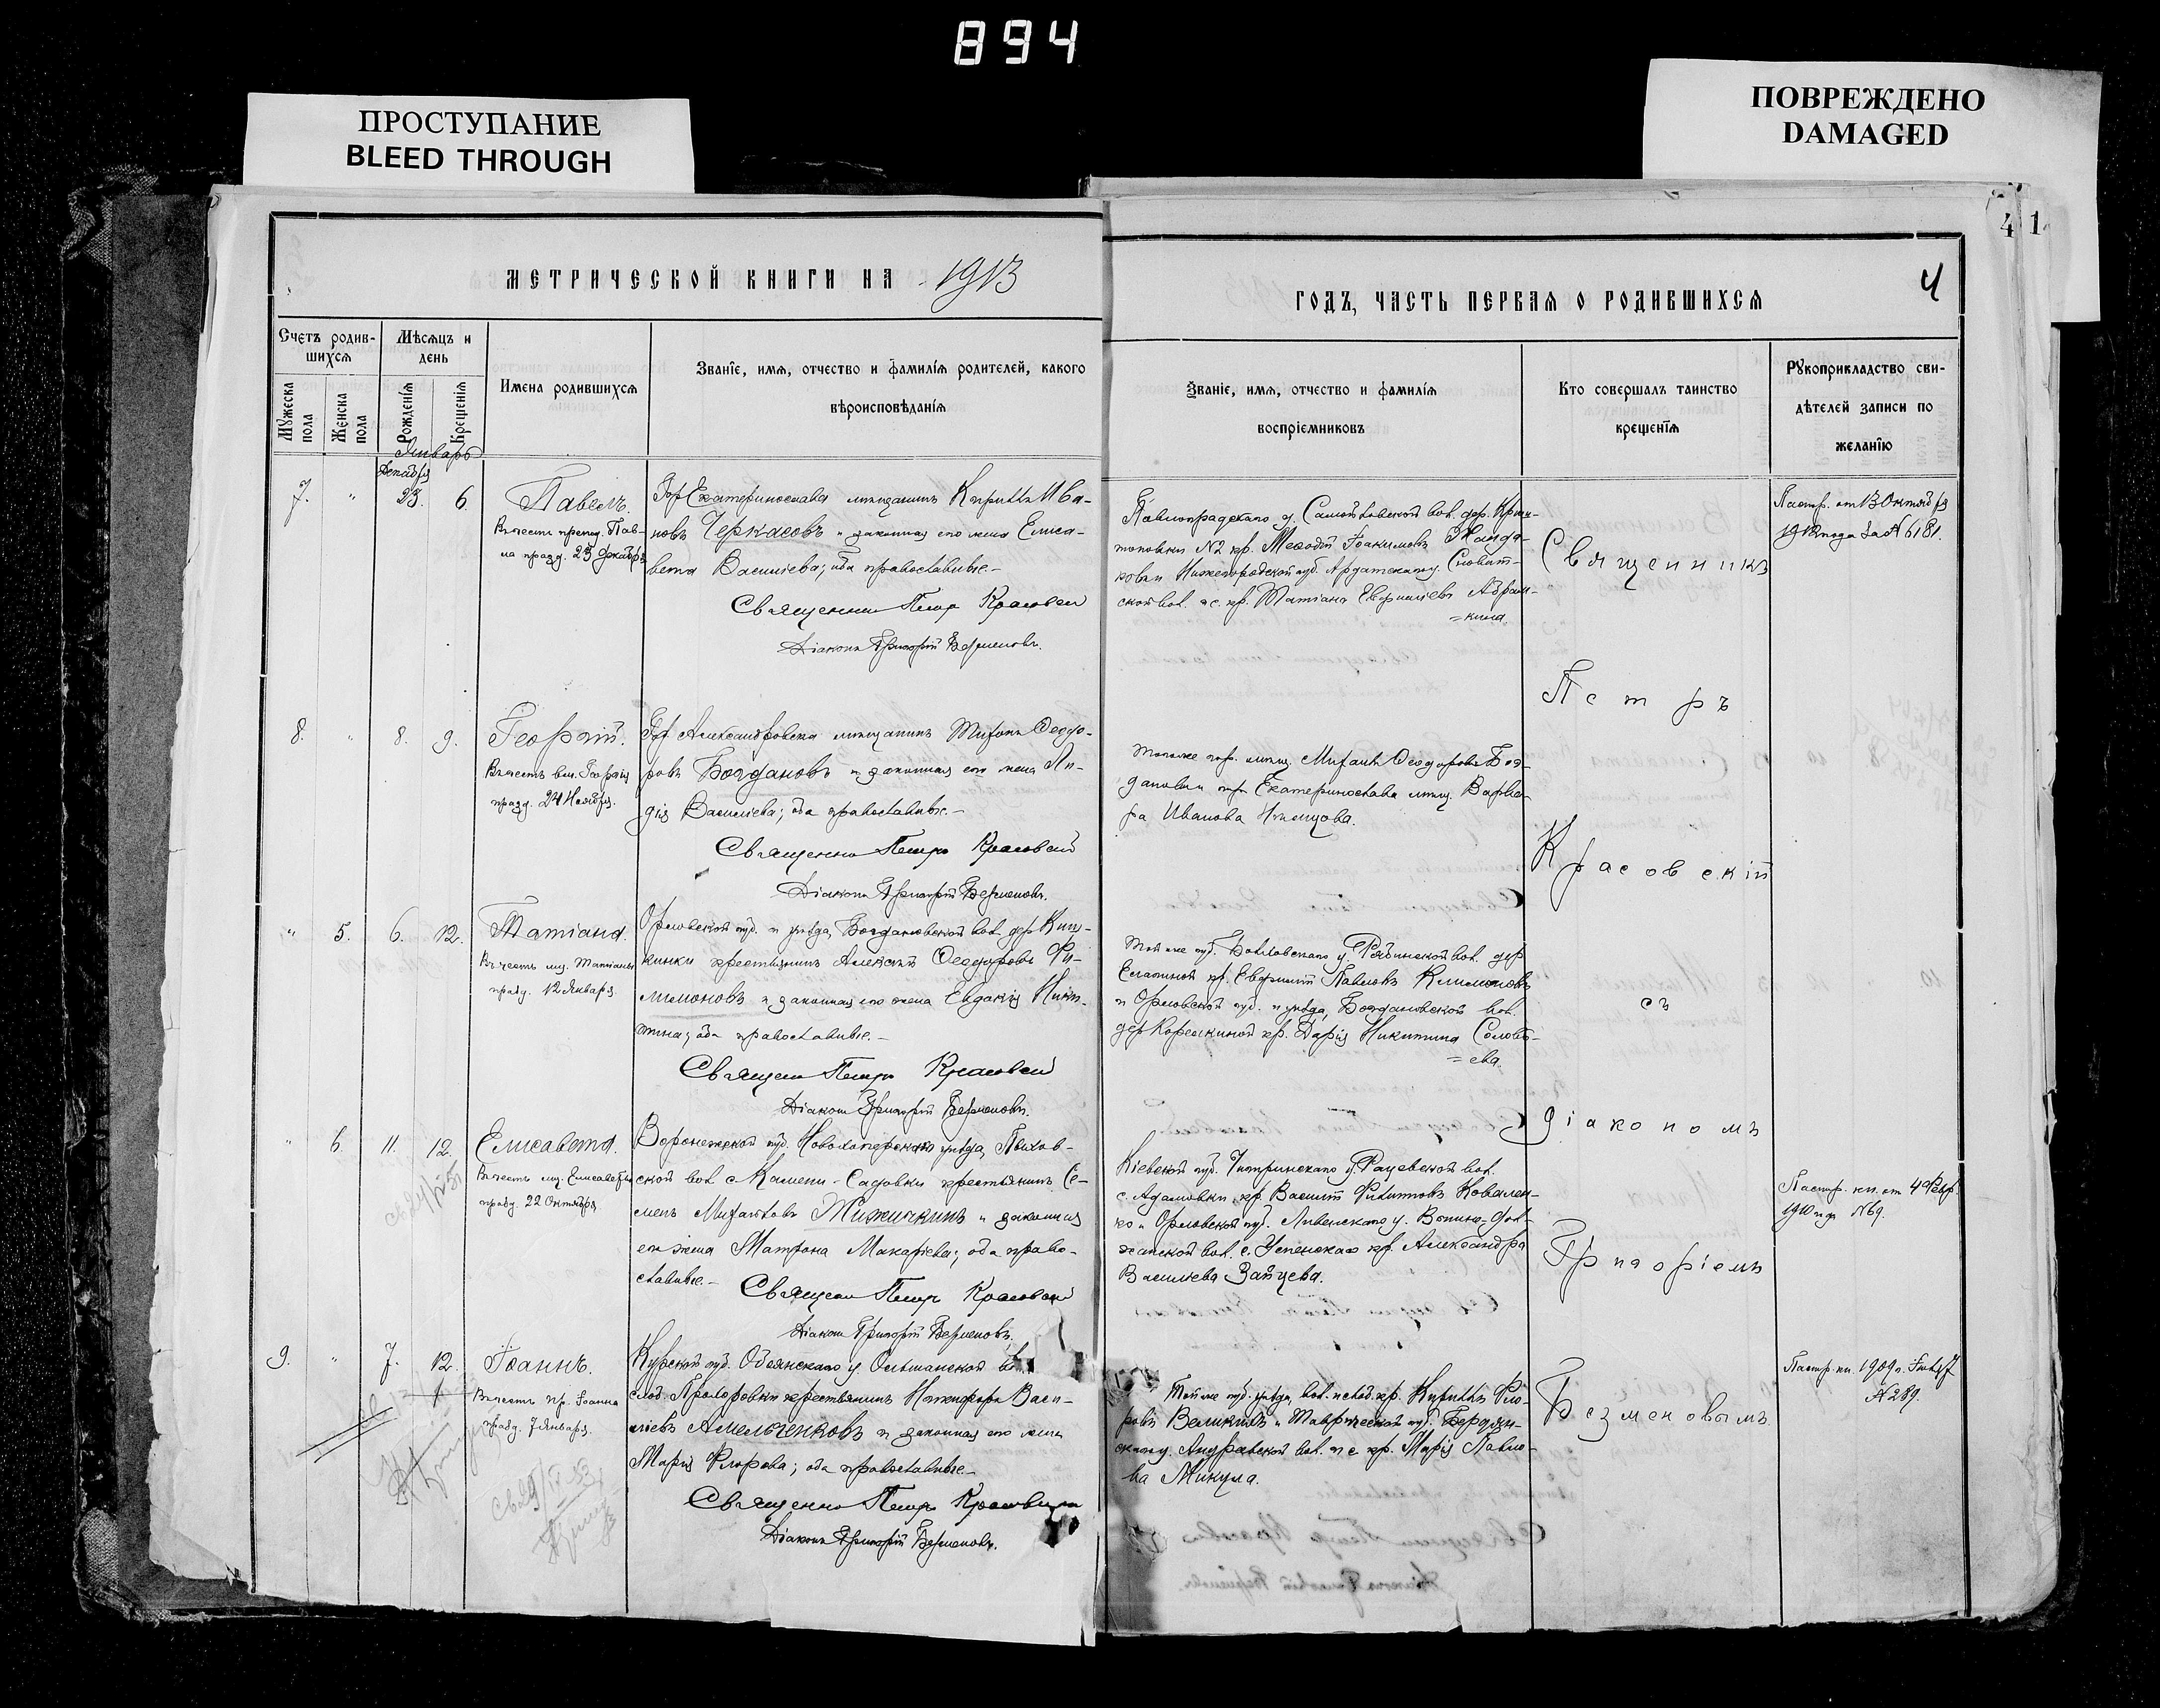 894
ПРОСТУПАНИЕ
BLEED THROUGH
ПОВРЕЖДЕНО
DAMAGED
41
МЕТРИЧЕСКОЙ КНИГИ НА 1913
ГОДЪ, ЧАСТЬ ПЕРВАЯ О РОДИВШИХСЯ
4
Счетъ родив-
шихся
Мужеска пола
Женска пола
Мѣсяцъ и
день
Рожденія
Крещенія
Имена родившихся
Званіе, имя, отчество и фамилія родителей, какого
вѣроисповѣданія
Званіе, имя, отчество и фамилія
воспріемниковъ
Кто совершалъ таинство
крещенія
Рукоприкладство сви-
дѣтелей записи по
желанію
Январь
Декабря
7. " 23. 6.
Павелъ.
Въ честь препод. Пав-
ла празд. 23 Декабря
Гор. Екатеринослава мѣщанинъ Кириллъ Ива-
новъ Черкасовъ и законная его жена Елиса-
вета Василіева; оба православные.-
Священникъ Петръ Красовскій
Діаконъ Григорій Безменовъ.
Павлоградскаго у.
кр. Меѳодій Іоакимовъ
ковъ и Нижегородской губ. Ардатскаго у.
ской вол. и с. кр. Татіана Абрам-
=кина.
Паспр. отъ 13 Октября
1912 года за № 6181.
8. " 8. 9.
Георгій.
Въ честь вмч. Георгія
празд. 24 Ноября.
Гор. Александровска мѣщанинъ Ѳеодо-
ровъ Богдановъ и законная его жена Ли-
дія Василіева; оба православные.-
Священникъ Петръ Красовскій
Діаконъ Григорій Безменовъ.
Того же гор. мѣщ. Ѳеодоровъ Бог-
дановъ и гор. Екатеринослава мѣщ. Варва-
ра Иванова Нѣмцова.
" 5. 6. 12.
Татіана.
Въ честь мц. Татіаны
празд. 12 Января.
Орловской губ. и уѣзда, Богдановской вол. дер.
крестьянинъ Алексій Ѳеодоровъ Фи-
лимоновъ и законная его жена Евдокія Ники-
тина; оба православные.-
Священникъ Петръ Красовскій
Діаконъ Григорій Безменовъ.
Той же губ. Болховскаго у. вол. дер.
кр. Евфимій Павловъ Климоновъ
и Орловской губ. и уѣзда, Богдановской вол.
дер. Корелкиной кр. Дарія Никитина Соловь-
=ева.
" 6. 11. 12.
Елисавета.
Въ честь мц. Елисаветы
празд. 22 Октября
Воронежской губ. Новохоперскаго уѣзда,
ской вол. с. Камени-Садовки крестьянинъ Се-
менъ Михайловъ Жижичкинъ и законная
его жена Матрона Макаріева; оба право-
славные.-
Священникъ Петръ Красовскій
Діаконъ Григорій Безменовъ.
Кіевской губ. Чигиринскаго у. Рацевской вол.
с. Адамовки кр. Василій Филипповъ Ковален-
ко и Орловской губ. Ливенскаго у.
жанской вол. с. Успенскаго кр. Александра
Василіева Зайцева.
Паспр. кн. отъ 4 Февр.
1910 г. за №69.
9. " 7. 12.
Іоаннъ.
Въ честь пр. Іоанна
празд. 7 Января.
Курской губ. Обоянскаго у. Ольшанской вол.
слоб. Прохоровки крестьянинъ Никифоръ Васи-
ліевъ Амельченковъ и законная его жена
Марія Флорова; оба православные.-
Священникъ Петръ Красовскій
Діаконъ Григорій Безменовъ.
Той же губ. уѣзда, вол. и слоб. кр. Кириллъ Фло-
ровъ Великихъ и Таврической губ. Бердян-
скаго у. Андреевской вол. и с. кр. Марія Павло-
ва Микула.
Паспр. кн. 1909 г.
№ 289.
Священникъ
Петръ
Красовскій
съ
діакономъ
Григоріемъ
Безменовымъ